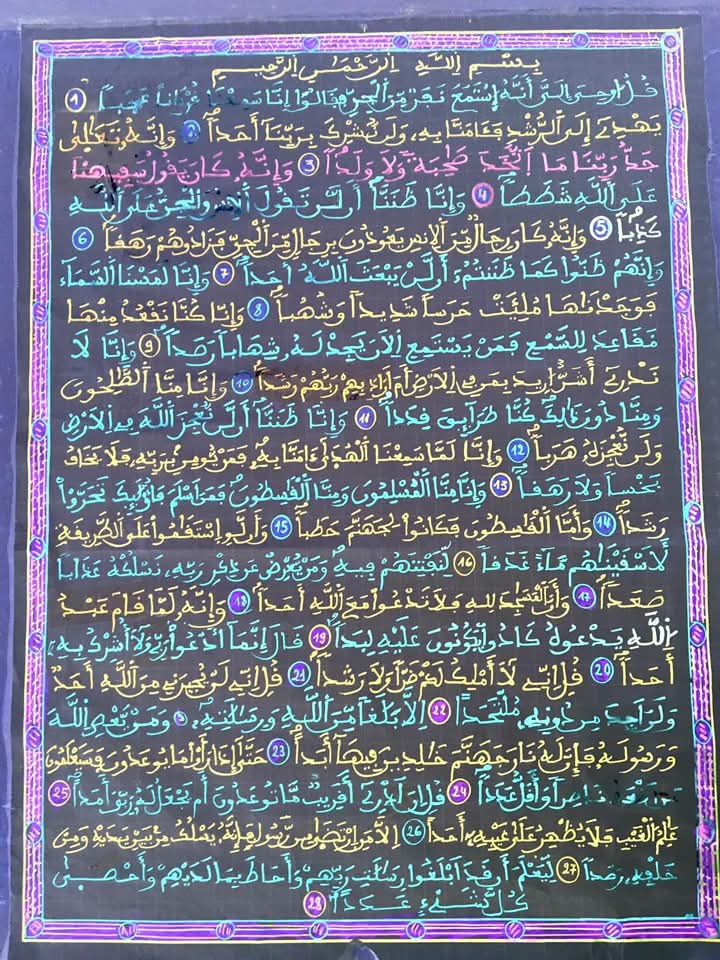 بِسْمِ اِللَّهِ اِلرَّحْمَٰنِ اِلرَّحِيمِ
قُلُ اوحِيَ إِلَيَّ أَنَّهُ اُسْتَمَعَ نَفَرٌ مِّنَ اَلْجِنِّ فَقَالُوٓاْ إِنَّا سَمِعْنَا قُرْءَاناً عَجَباً 1
يَهْدِےٓ إِلَى اَلرُّشْدِ فَـَٔامَنَّا بِهِۦ وَلَن نُّشْرِكَ بِرَبِّنَآ أَحَداً 2 وَإِنَّهُۥ تَعَٰلَىٰ
جَدُّ رَبِّنَا مَا اَتَّخَذَ صَٰحِبَةً وَلَا وَلَداً 3 وَإِنَّهُۥ كَانَ يَقُولُ سَفِيهُنَا
عَلَى اَللَّهِ شَطَطاً 4 وَإِنَّا ظَنَنَّآ أَن لَّن تَقُولَ اَلِانسُ وَالْجِنُّ عَلَى اَللَّهِ
كَذِباً 5 وَإِنَّهُۥ كَانَ رِجَالٌ مِّنَ اَلِانسِ يَعُوذُونَ بِرِجَالٍ مِّنَ اَلْجِنِّ فَزَادُوهُمْ رَهَقاً 6
وَإِنَّهُمْ ظَنُّواْ كَمَا ظَنَنتُمُۥٓ أَن لَّنْ يَّبْعَثَ اَللَّهُ أَحَداً 7 وَإِنَّا لَمَسْنَا اَلسَّمَآءَ
فَوَجَدْنَٰهَا مُلِئَتْ حَرَساً شَدِيداً وَشُهُباً 8 وَإِنَّا كُنَّا نَقْعُدُ مِنْهَا
مَقَٰعِدَ لِلسَّمْعِ فَمَنْ يَّسْتَمِعِ اِلَانَ يَجِدْ لَهُۥ شِهَاباً رَّصَداً 9 وَإِنَّا لَا
نَدْرِےٓ أَشَرٌّ ارِيدَ بِمَن فِے اِلَارْضِ أَمَ اَرَادَ بِهِمْ رَبُّهُمْ رَشَداً 10 وَإِنَّا مِنَّا اَلصَّٰلِحُونَ
وَمِنَّا دُونَ ذَٰلِكَ كُنَّا طَرَآئِقَ قِدَداً 11 وَإِنَّا ظَنَنَّآ أَن لَّن نُّعْجِزَ اَللَّهَ فِے اِلَارْضِ
وَلَن نُّعْجِزَهُۥ هَرَباً 12 وَإِنَّا لَمَّا سَمِعْنَا اَلْهُدَىٰٓ ءَامَنَّا بِهِۦ فَمَنْ يُّومِنۢ بِرَبِّهِۦ فَلَا يَخَافُ
بَخْساً وَلَا رَهَقاً 13 وَإِنَّا مِنَّا اَلْمُسْلِمُونَ وَمِنَّا اَلْقَٰسِطُونَ فَمَنَ اَسْلَمَ فَأُوْلَٰٓئِكَ تَحَرَّوْاْ
رَشَداً 14 وَأَمَّا اَلْقَٰسِطُونَ فَكَانُواْ لِجَهَنَّمَ حَطَباً 15 وَأَن لَّوِ اِسْتَقَٰمُواْ عَلَى اَلطَّرِيقَةِ
لَأَسْقَيْنَٰهُم مَّآءً غَدَقاً 16 لِّنَفْتِنَهُمْ فِيهِ وَمَنْ يُّعْرِضْ عَن ذِكْرِ رَبِّهِۦ نَسْلُكْهُ عَذَاباً
صَعَداً 17 وَأَنَّ اَلْمَسَٰجِدَ لِلهِ فَلَا تَدْعُواْ مَعَ اَللَّهِ أَحَداً 18 وَإِنَّهُۥ لَمَّا قَامَ عَبْدُ
اُللَّهِ يَدْعُوهُ كَادُواْ يَكُونُونَ عَلَيْهِ لِبَداً 19 قَالَ إِنَّمَآ أَدْعُواْ رَبِّے وَلَآ أُشْرِكُ بِهِۦٓ
أَحَداً 20 قُلِ اِنِّے لَآ أَمْلِكُ لَكُمْ ضَرّاً وَلَا رَشَداً 21 قُلِ اِنِّے لَنْ يُّجِيرَنِے مِنَ اَللَّهِ أَحَدٌ
وَلَنَ اَجِدَ مِن دُونِهِۦ مُلْتَحَداً 22 اِلَّا بَلَٰغاً مِّنَ اَللَّهِ وَرِسَٰلَٰتِهِۦ وَمَنْ يَّعْصِ اِللَّهَ
وَرَسُولَهُۥ فَإِنَّ لَهُۥ نَارَ جَهَنَّمَ خَٰلِدِينَ فِيهَآ أَبَداً 23 حَتَّىٰٓ إِذَا رَأَوْاْ مَا يُوعَدُونَ فَسَيَعْلَمُونَ
نَاصِراً وَأَقَلُّ عَدَداً 24 قُلِ اِنَ اَدْرِےٓ أَقَرِيبٌ مَّا تُوعَدُونَ أَمْ يَجْعَلُ لَهُۥ رَبِّيَ أَمَداً 25
عَٰلِمُ اُلْغَيْبِ فَلَا يُظْهِرُ عَلَىٰ غَيْبِهِۦٓ أَحَداً 26 اِلَّا مَنِ اِرْتَضَىٰ مِن رَّسُولٍ فَإِنَّهُۥ يَسْلُكُ مِنۢ بَيْنِ يَدَيْهِ وَمِنْ
خَلْفِهِۦ رَصَداً 27 لِّيَعْلَمَ أَن قَدَ اَبْلَغُواْ رِسَٰلَٰتِ رَبِّهِمْ وَأَحَاطَ بِمَا لَدَيْهِمْ وَأَحْصَىٰ
كُلَّ شَےْءٍ عَدَداً 28